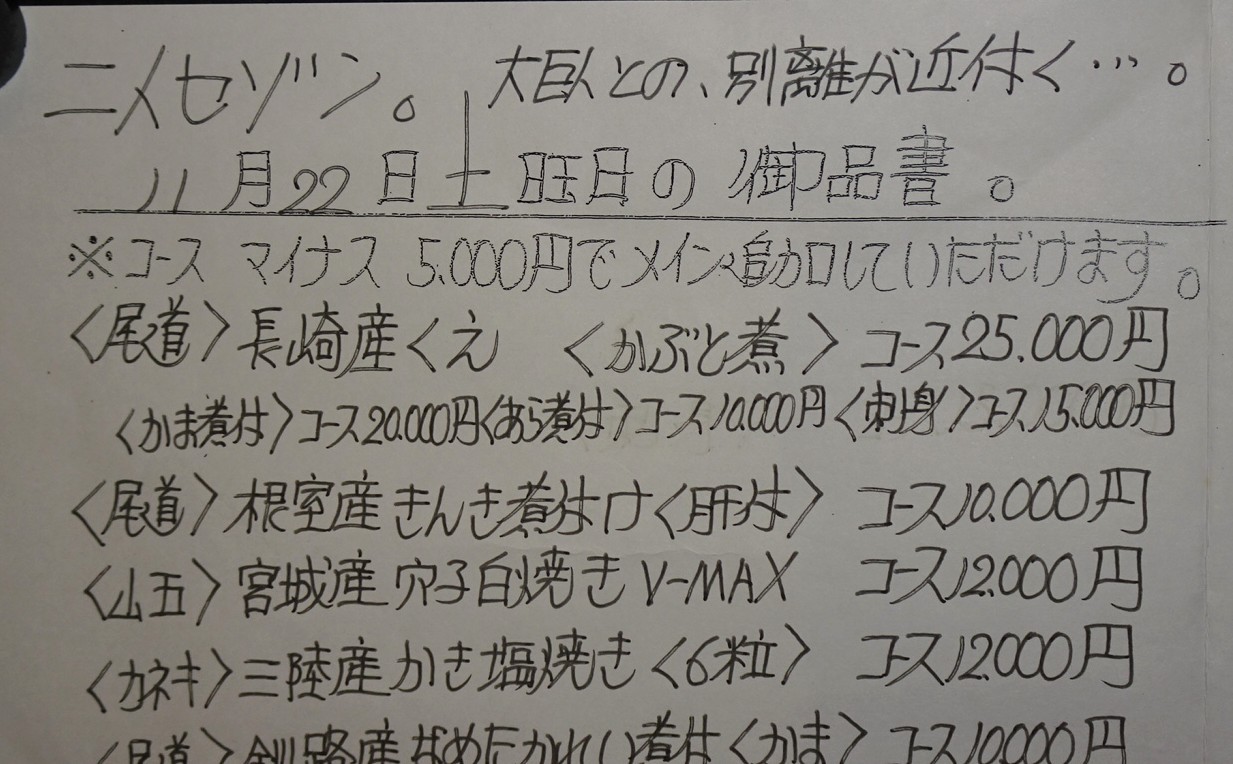 ニノセゾン。大臣との、別離が近付く…。
11月22日土旺日の御品書。
※コース マイナス 5.000円でメイン追加していただけます。
〈尾道〉長崎産くえ 〈かぶと煮〉 コース25.000円
〈かま煮付〉コース20.000円〈あら煮付〉コース10.000円〈刺身〉コース15.000円
〈尾道〉根室産きんき煮付け〈肝付〉 コース10.000円
〈山五〉宮城産穴子白焼きV-MAX コース12.000円
〈カネキ〉三陸産かき塩焼き〈6粒〉 コース12.000円
〈尾道〉釧路産なめたかれい煮付〈かま〉コース10.000円